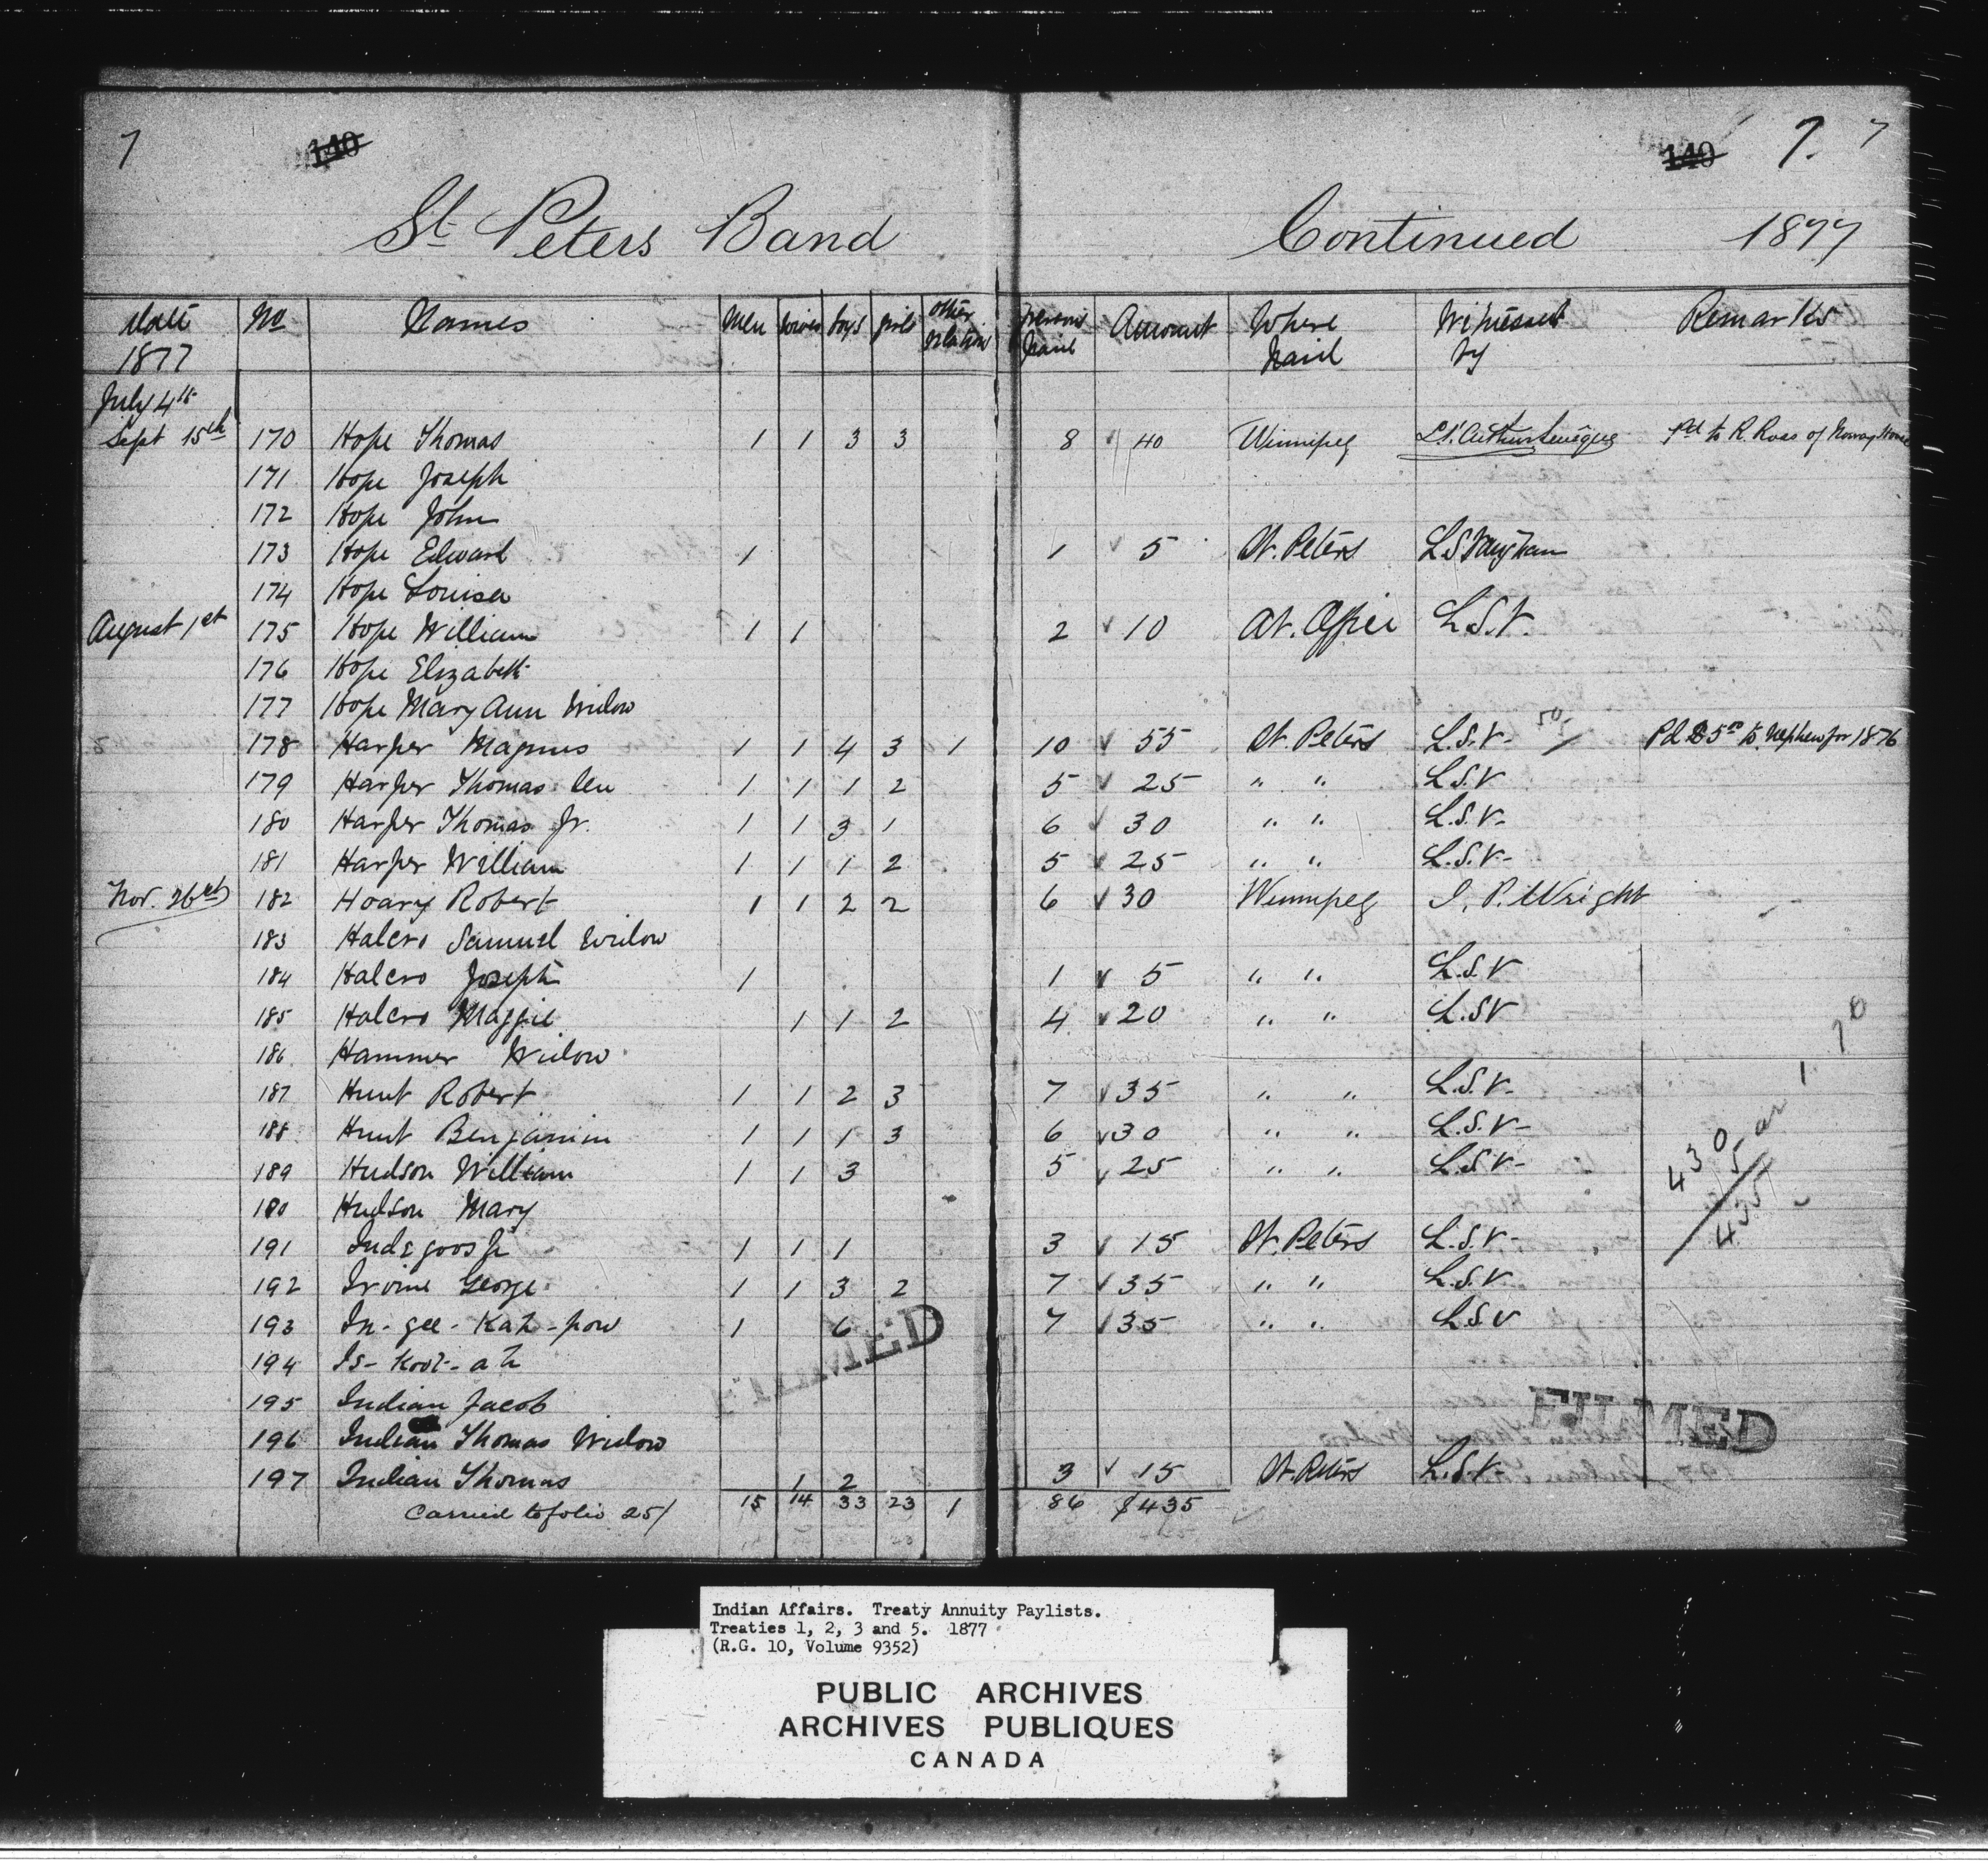 7 140 140 7. 7
St Peters Band Continued 1877
Date 1877 No Names Men Wives boys girls other relations Persons Paid Amount Where Paid Witnessed by Remarks
July 4th
Sept 15th 170 Hope Thomas 1 1 3 3 8 40 Winnipeg Pd to R. Ross of Norway House
171 Hope Joseph
172 Hope John
173 Hope Edward 1 1 5 St. Peters L S Vaughan
174 Hope Louisa
August 1st 175 Hope William 1 1 2 10 At. Office L.S.V.
176 Hope Elizabeth
177 Hope Mary Ann Widow
178 Harper Magnus 1 1 4 3 1 10 55 St. Peters L.S.V- 50- Pd $5 to Nephew for 1876
179 Harper Thomas Sen 1 1 1 2 5 25 " " L.S.V
180 Harper Thomas Jr. 1 1 3 1 6 30 " " L.S.V-
181 Harper William 1 1 1 2 5 25 " " L.S.V-
Nov. 26th 182 Hoary Robert 1 1 2 2 6 30 Winnipeg J. P. Wright
183 Halcro Samuel Widow
184 Halcro Joseph 1 1 5 " " L.S.V
185 Halcro Maggie 1 1 2 4 20 " " L.SV
186 Hammer Widow
187 Hunt Robert 1 1 2 3 7 35 " " L.S.V-
188 Hunt Benjamin 1 1 1 3 6 30 " " L.S.V-
189 Hudson William 1 1 3 5 25 " " L.S.V-
180 Hudson Mary
430
5 ar
435
191 1 1 1 3 15 St. Peters L.S.V-
192 Irvine George 1 1 3 2 7 35 " " L.S.V
193 In-gee-Kah-pow 1 6 7 35 " " L.S.V
194 Is-Koot-ah
195 Indian Jacob
196 Indian Thomas Widow
197 Indian Thomas 1 2 3 15 St. Peters L.S.V-
Carried to folio 25/ 15 14 33 23 1 86 $435
FILMED
FILMED
Indian Affairs. Treaty Annuity Paylists.
Treaties 1, 2, 3 and 5. 1877
(R.G. 10, Volume 9352)
PUBLIC ARCHIVES
ARCHIVES PUBLIQUES
CANADA